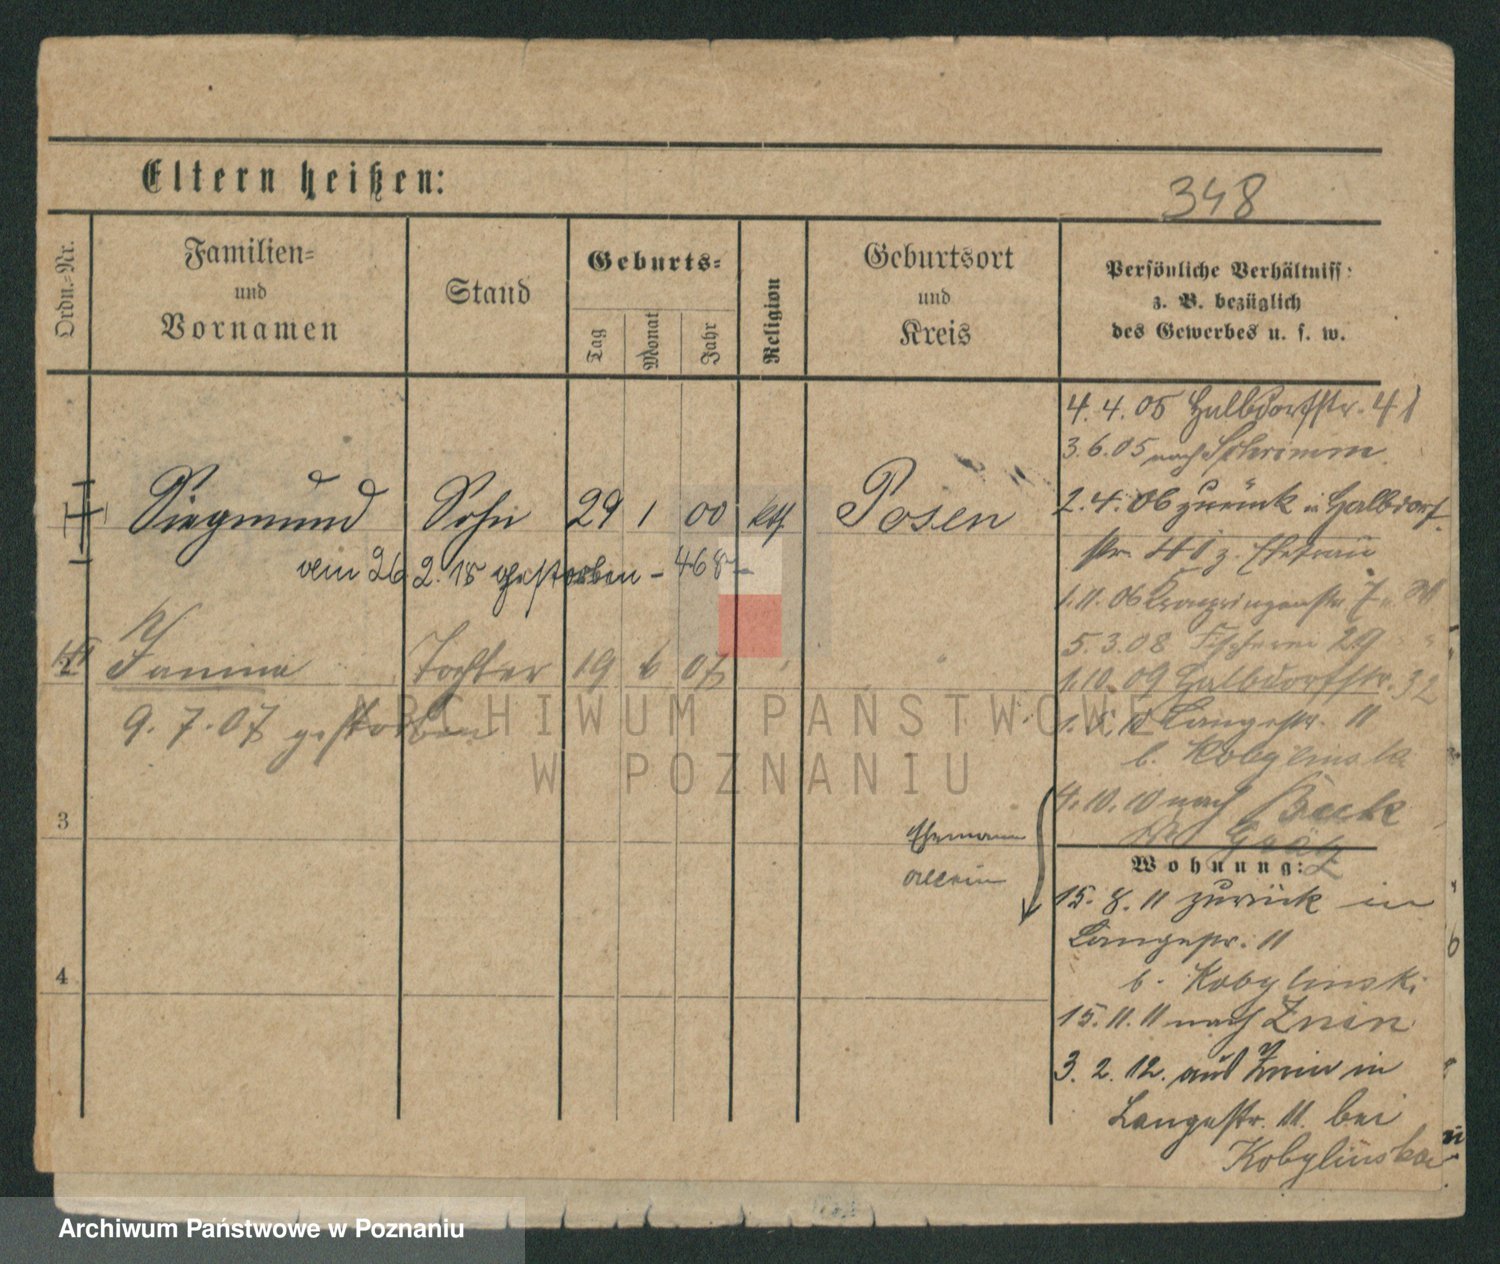 Eltern heißen:
348
Ordn.-Nr.
Familien-
und
Vornamen
Stand
Geburts-
Tag
Monat
Jahr
Religion
Geburtsort
und
Kreis
Persönliche Verhältniss:
z. B. bezüglich
des Gewerbes u. s. w.
4. 4. 05 Halbdorfstr. 41
3. 6. 05 nach Schrimm
2. 4. 06 zurück in Halbdorf
str. 41 z. Ehefrau
1. 11. 06 Kronprinzenstr. 7
5. 3. 08 Fischerei 29
1. 10. 09 Halbdorfstr. 32
Langestr. 11
b. Kobylinska
4. 10. 10 nach Buk
Grätz
1 Siegmund Sohn 29 1 00 kth. Posen
26. 2. 18 gestorben – 468 –
2 Janina Tochter 19 6 07
9. 7. 07 gestorben
3
4
Ehemann
allein
Wohnung:
15. 8. 11 zurück in
Langestr. 11
b. Kobylinski
15. 11. 11 nach Znin
3. 2. 12. aus Znin in
Langestr. 11. bei
Kobylinska
ARCHIWUM PAŃSTWOWE
W POZNANIU
Archiwum Państwowe w Poznaniu